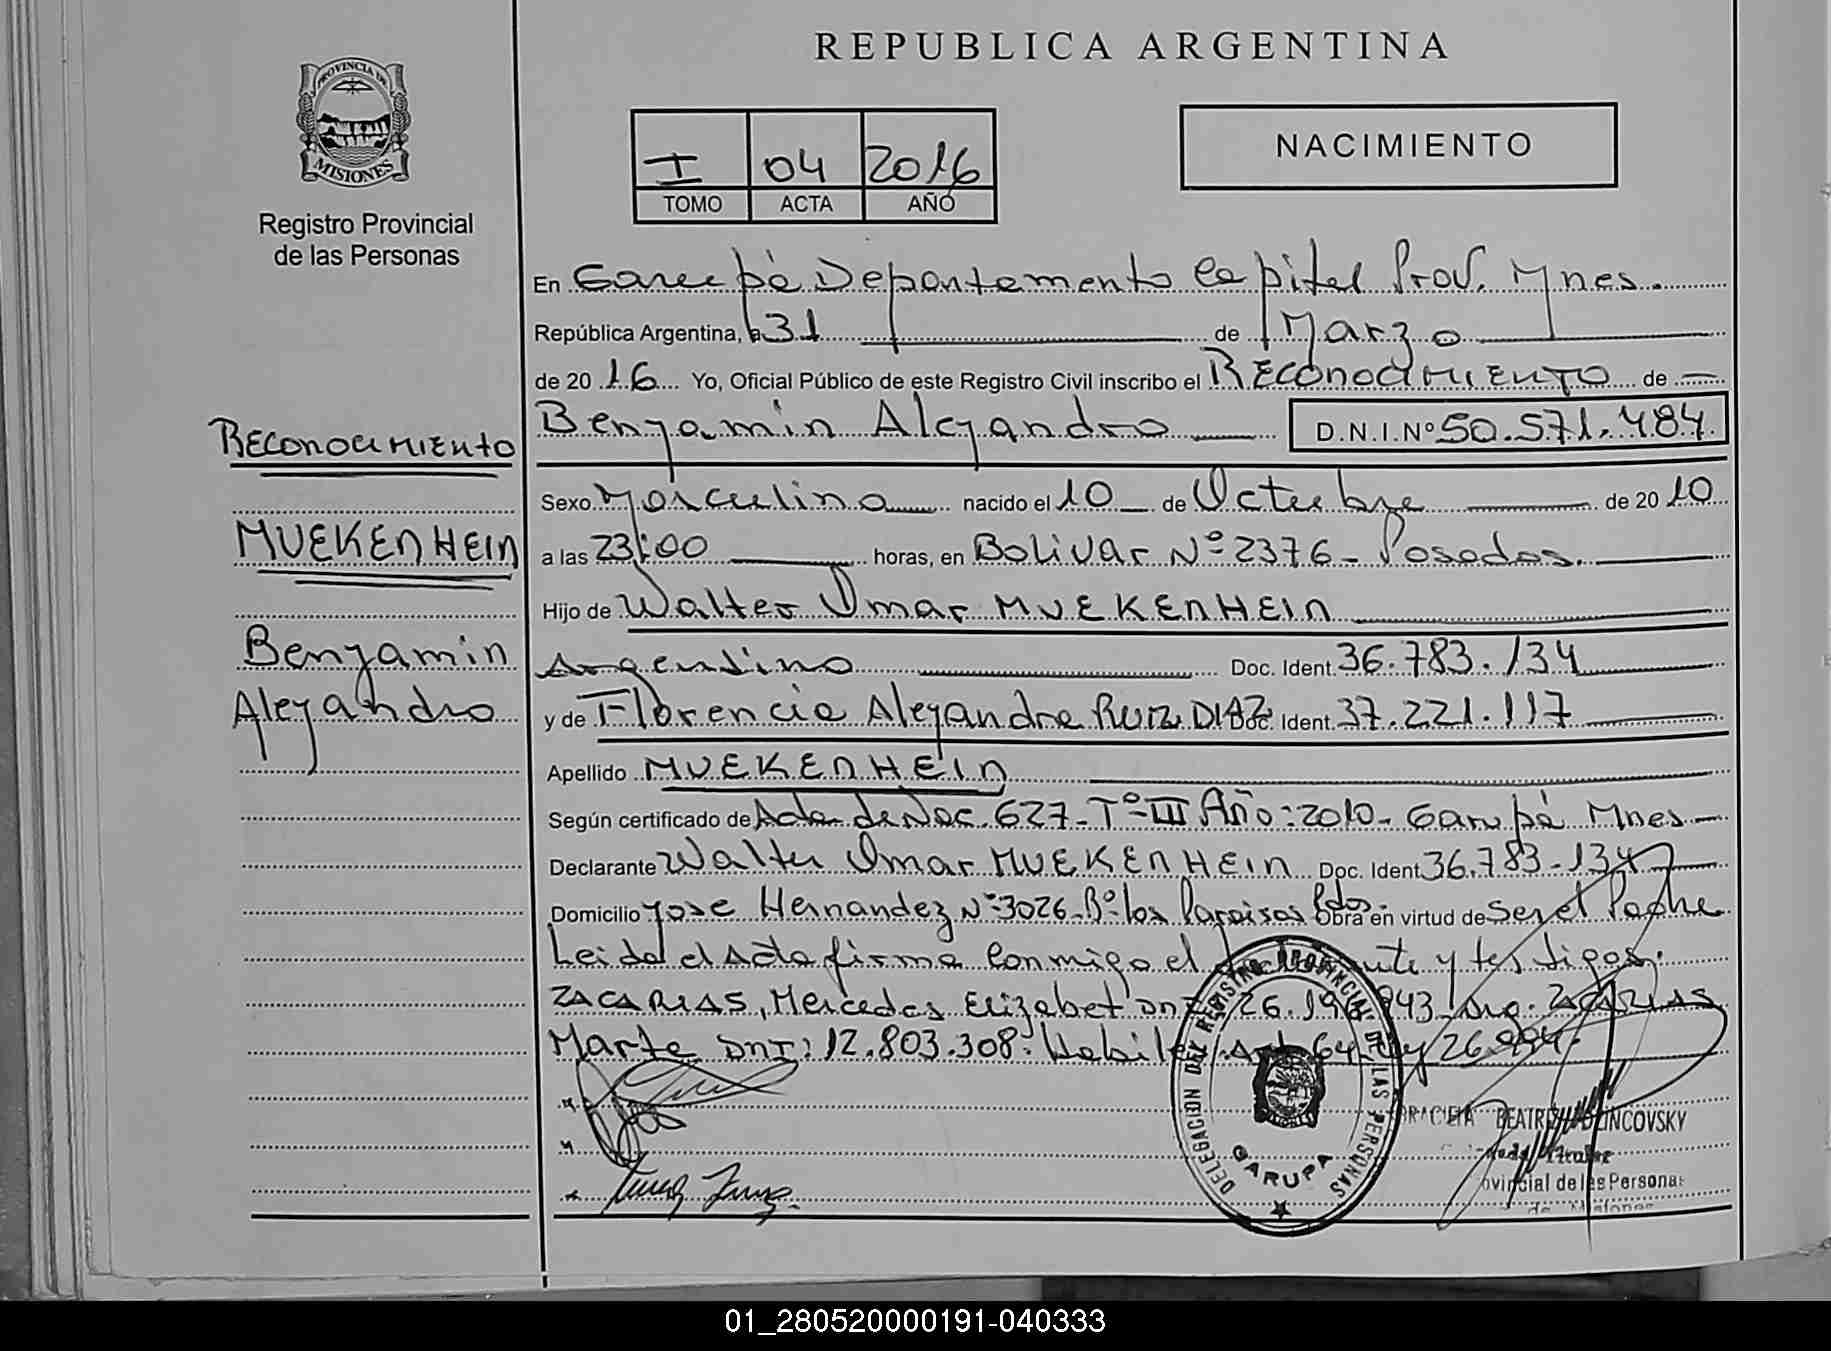 REPUBLICA ARGENTINA
PROVINCIA DE
MISIONES
Registro Provincial
de las Personas
I 04 2016
TOMO ACTA AÑO
NACIMIENTO
En Garupá Departamento Capital Prov. Mnes.
República Argentina, a 31 de Marzo
de 2016 Yo, Oficial Público de este Registro Civil inscribo el Reconocimiento de
Benjamin Alejandro D.N.I.Nº 50.571.484
Reconocimiento
Sexo Masculino nacido el 10 de Octubre de 2010
MUEKENHEIN
a las 23:00 horas, en Bolivar Nº 2376 - Posadas.
Hijo de Walter Omar MUEKENHEIN
Benjamin
Alejandro
Argentino Doc. Ident. 36.783.134
y de Florencia Alejandra RUIZ DIAZ Doc. Ident. 37.221.117
Apellido MUEKENHEIN
Según certificado de Acta de Nac. 627 - Tº III Año: 2010 - Garupá Mnes
Declarante Walter Omar MUEKENHEIN Doc. Ident. 36.783.134
Domicilio Jose Hernandez Nº 3026 - Bº los Paraisos Pdos. Obra en virtud de ser el Padre
Leida el Acta firma conmigo el y testigos.
ZACARIAS, Mercedes Elizabet DNI 26.19 Arg. ZACARIAS
Marta DNI: 12.803.308. Habiles Art. 64 26.994.
DELEGACION DEL REGISTRO PROVINCIAL DE LAS PERSONAS
GARUPA
GRACIELA BEATRIZ
Provincial de las Personas
de Misiones
01_280520000191-040333